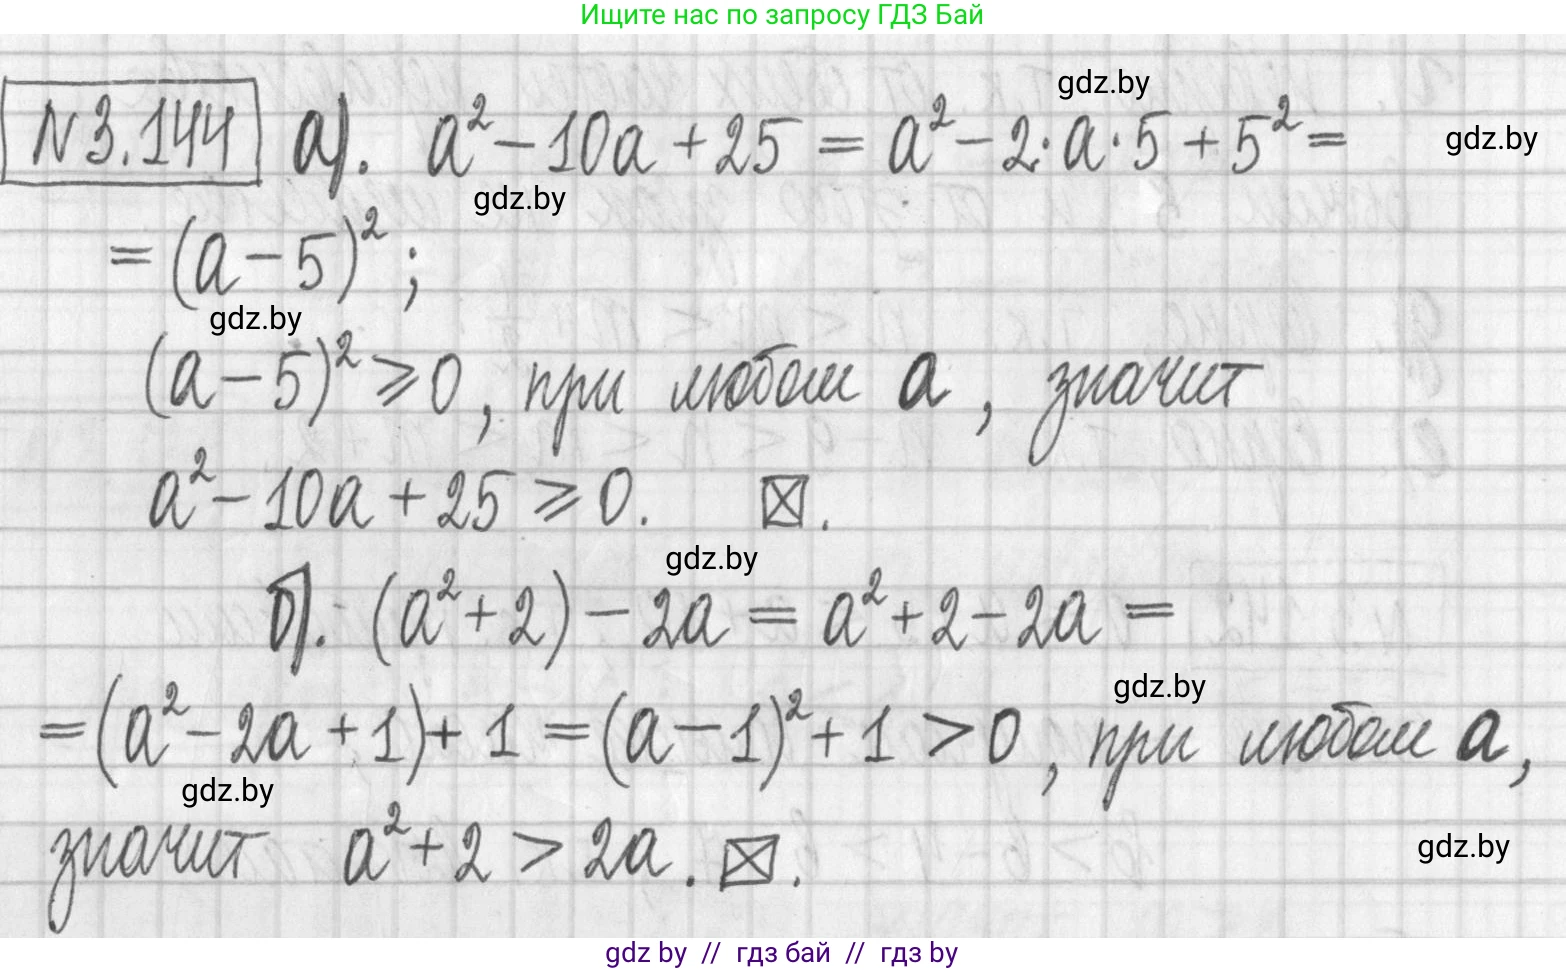 Ищите нас по запросу ГДЗ Бай
gdz.by
№3.144 а). a² − 10a + 25 = a² − 2·a·5 + 5² =
gdz.by
gdz.by
= (a − 5)² ;
gdz.by
(a − 5)² ⩾ 0, при любом a, значит
a² − 10a + 25 ⩾ 0. ☒.
gdz.by
б). (a² + 2) − 2a = a² + 2 − 2a =
gdz.by
= (a² − 2a + 1) + 1 = (a − 1)² + 1 > 0, при любом a,
gdz.by
значит a² + 2 > 2a. ☒.
gdz.by
gdz by // гдз бай // гдз by